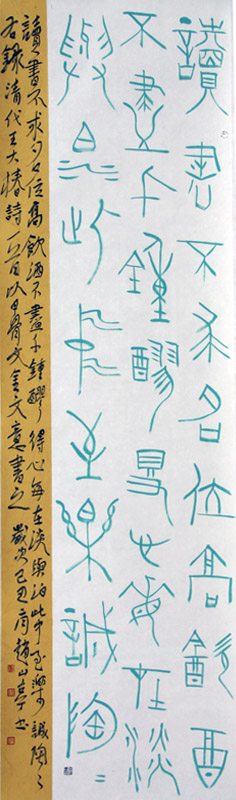 讀書不求名位高飲酒
不盡千鍾醪得心每在淡
與泊此中至樂誠陶〻
讀書不求名位高飲酒不盡千鍾醪得心每在淡與泊此中至樂誠陶〻
右錄清代王大詩一首以甲骨文金文意書之歲次己丑趙山亭書